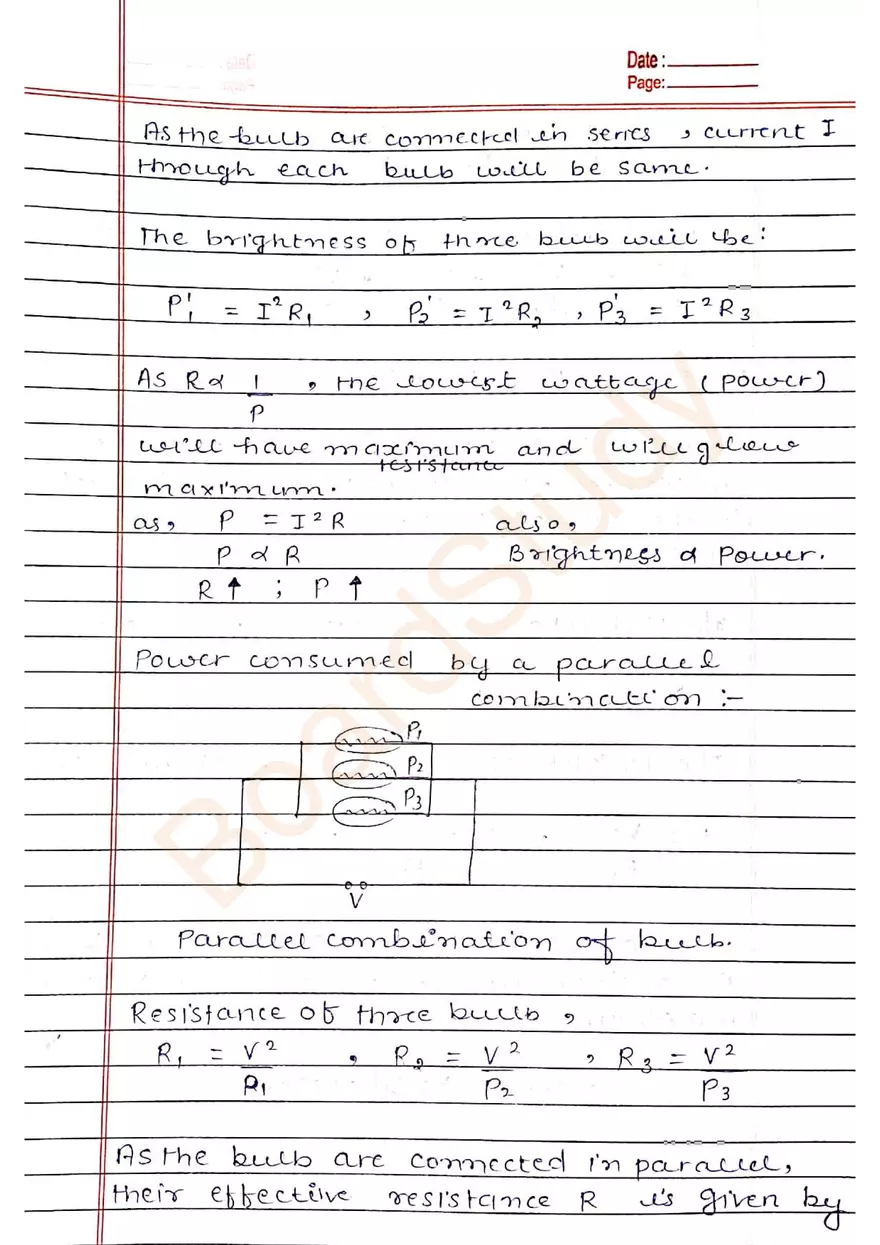 Date :
Page:
As the bulb are connected in series , current I
through each bulb will be same.
The brightness of three bulb will be:
P₁' = I²R₁ , P₂' = I²R₂ , P₃' = I²R₃
As R ∝ 1/P , the lowest wattage (power)
will have maximum resistance and will glow
maximum.
as, P = I²R also,
P ∝ R Brightness ∝ Power.
R ↑ ; P ↑
Power consumed by a parallel
combination :-
P₁
P₂
P₃
V
Parallel combination of bulb.
Resistance of three bulb ,
R₁ = V²/P₁ , R₂ = V²/P₂ , R₃ = V²/P₃
As the bulb are connected in parallel,
their effective resistance R is given by
BoardStudy